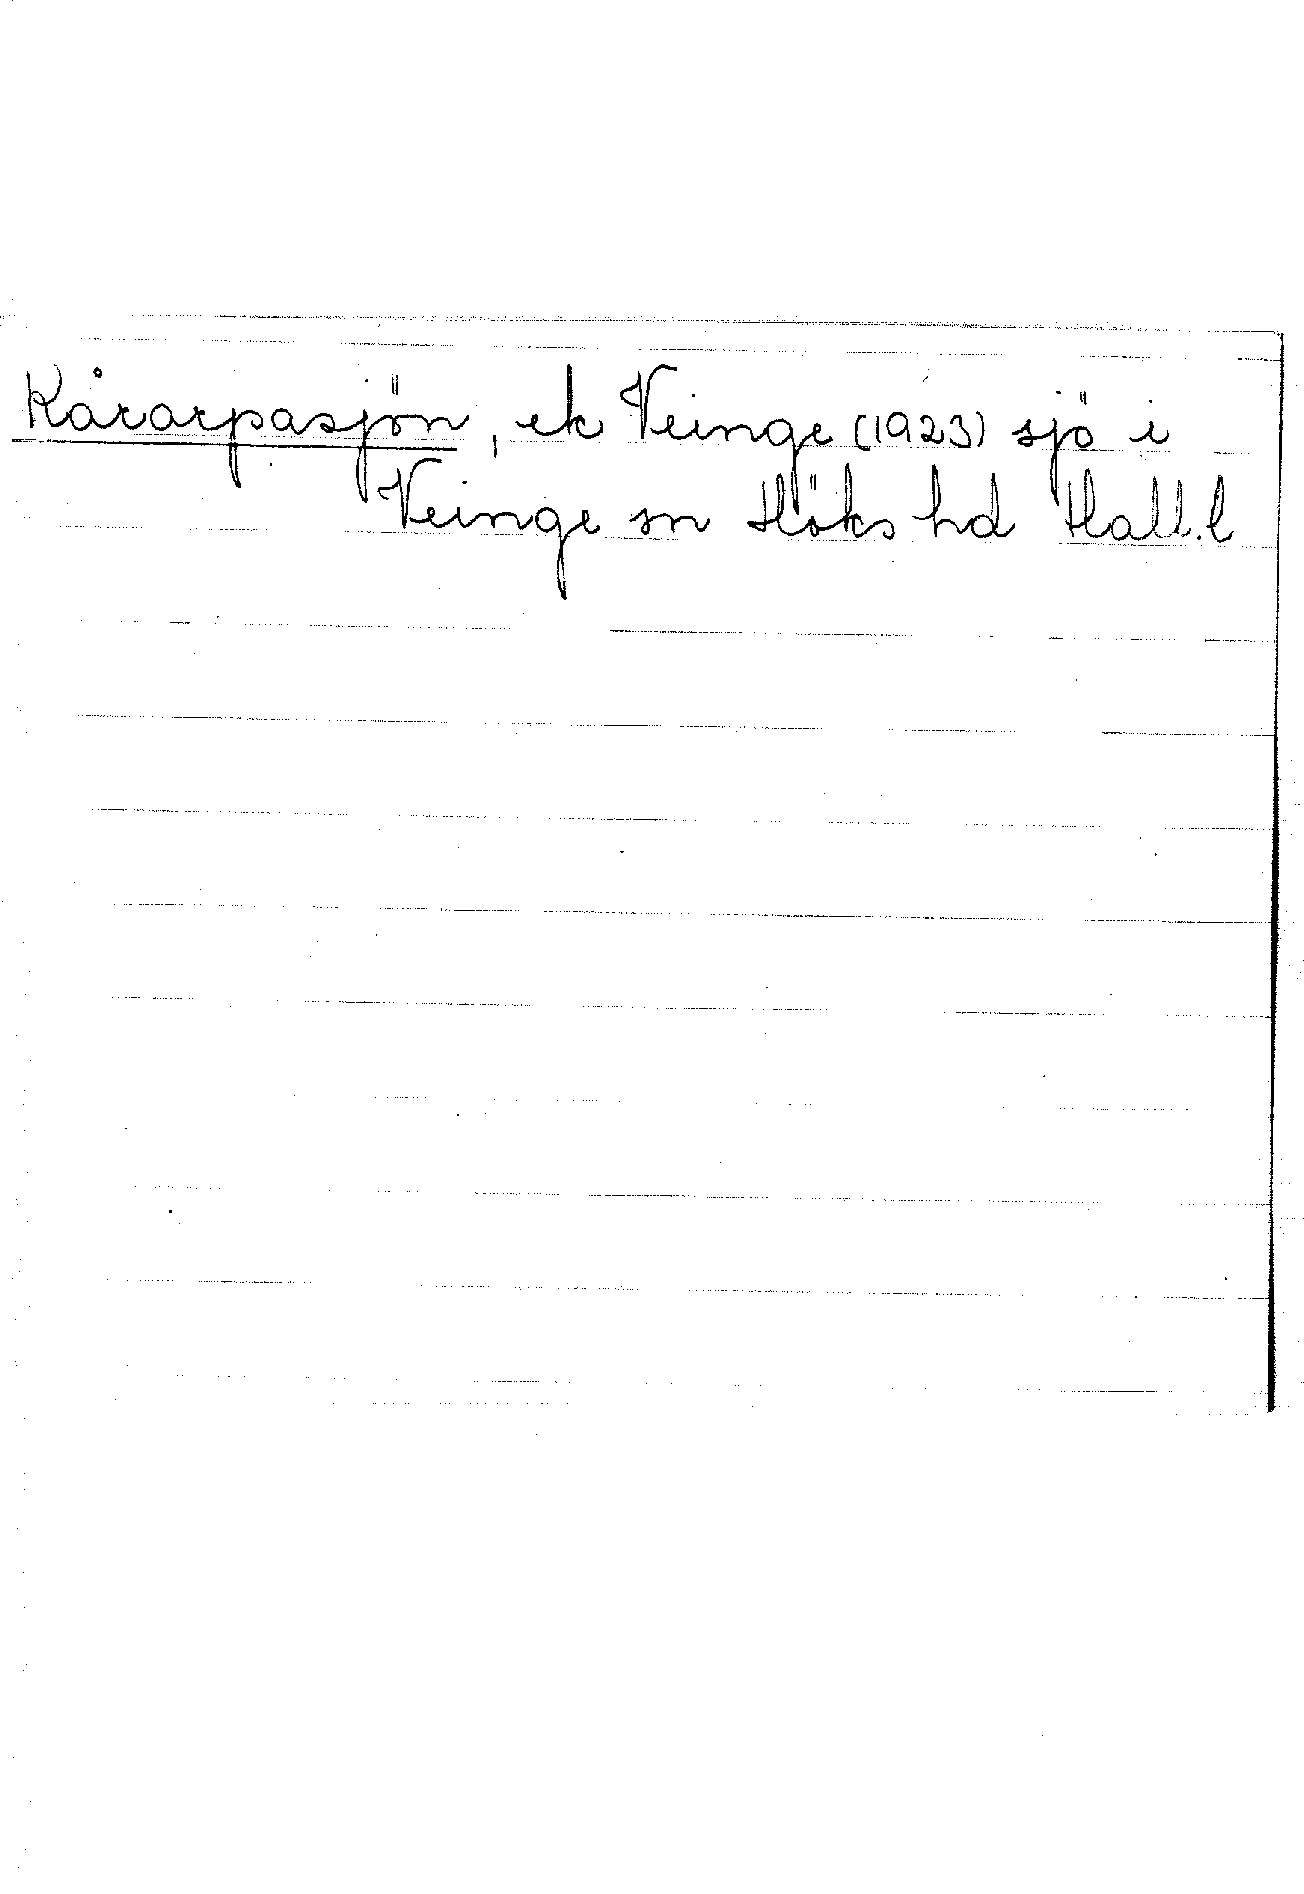 Kårarpasjön, ek Veinge (1923) sjö i
Veinge sn Höks hd Hall.l